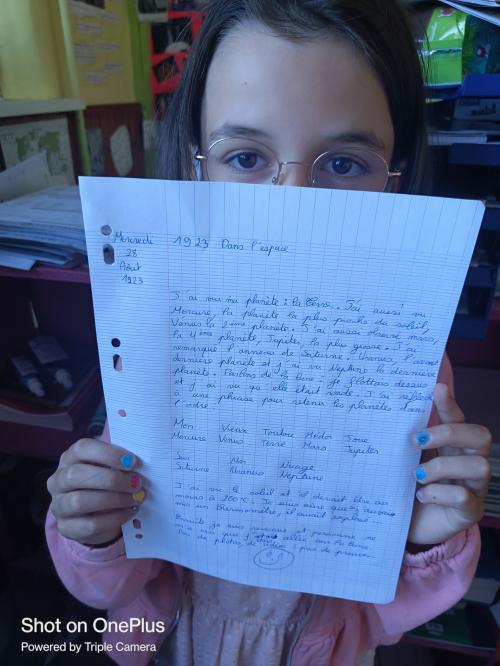 Mercredi
28
Août
1923
1923 Dans l'espace
J'ai vu ma planète : la Terre. J'ai aussi vu
Mercure, la planète la plus proche du soleil,
Venus la 2ème planète. J'ai aussi observé mars,
la 4ème planète, Jupiter, la plus grosse. J'ai
remarqué l'anneau de Saturne. Uranus, l'avant
dernière planète et j'ai vu Neptune la dernière
planète. Parlons de la lune : je flottais dessus
et j'ai vu qu'elle était ronde. J'ai réfléchi
à une phrase pour retenir les planètes dans
l'ordre.
Mon Vieux Toutou Médor Joue
Mercure Vénus Terre Mars Jupiter
Sur un Nuage
Saturne Uranus Neptune
J'ai vu le soleil et il devait être au
moins à 200°C. Je suis sûre que si j'avais
mis un thermomètre, il aurait explosé...
Ensuite je suis revenue et personne ne
m'a cru que j' allée sur la lune.
Pas de photos, pas de preuves.
Shot on OnePlus
Powered by Triple Camera